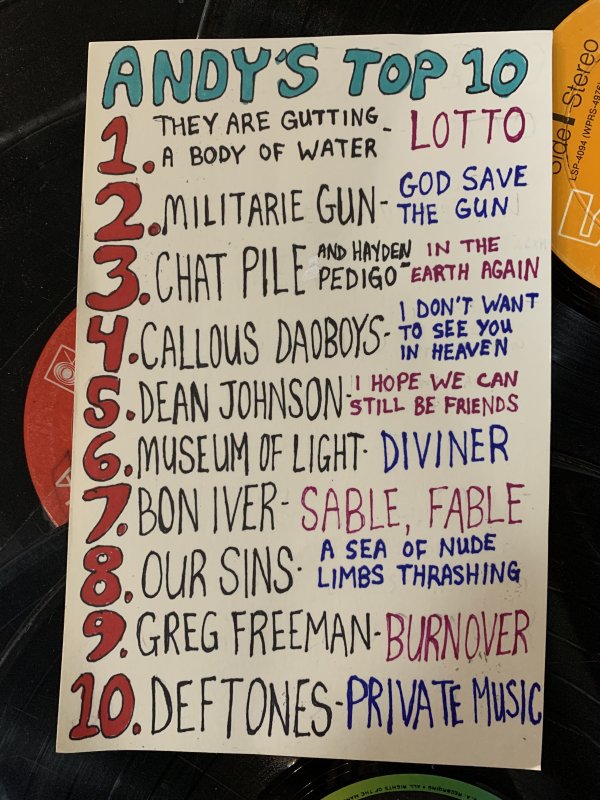 ANDY'S TOP 10
1. THEY ARE GUTTING A BODY OF WATER - LOTTO
2. MILITARIE GUN - GOD SAVE THE GUN
3. CHAT PILE AND HAYDEN PEDIGO - IN THE EARTH AGAIN
4. CALLOUS DAOBOYS - I DON'T WANT TO SEE YOU IN HEAVEN
5. DEAN JOHNSON - I HOPE WE CAN STILL BE FRIENDS
6. MUSEUM OF LIGHT - DIVINER
7. BON IVER - SABLE, FABLE
8. OUR SINS - A SEA OF NUDE LIMBS THRASHING
9. GREG FREEMAN - BURNOVER
10. DEFTONES - PRIVATE MUSIC
Side 1 Stereo
LSP-4094 (WPRS-4976)